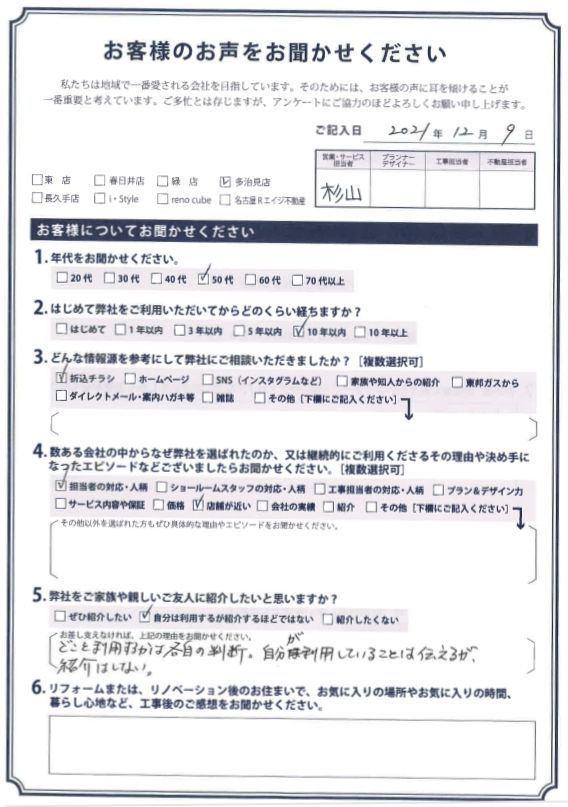 お客様のお声をお聞かせください
私たちは地域で一番愛される会社を目指しています。そのためには、お客様の声に耳を傾けることが
一番重要と考えています。ご多忙とは存じますが、アンケートにご協力のほどよろしくお願い申し上げます。
ご記入日 2021年 12月 9日
営業・サービス担当者 プランナーデザイナー 工事担当者 不動産担当者
杉山
□東 店 □春日井店 □緑 店 ☑多治見店
□長久手店 □i・Style □reno cube □名古屋Rエイジ不動産
お客様についてお聞かせください
1. 年代をお聞かせください。
□20代 □30代 □40代 ☑50代 □60代 □70代以上
2. はじめて弊社をご利用いただいてからどのくらい経ちますか?
□はじめて □1年以内 □3年以内 □5年以内 ☑10年以内 □10年以上
3. どんな情報源を参考にして弊社にご相談いただきましたか?[複数選択可]
☑折込チラシ □ホームページ □SNS(インスタグラムなど) □家族や知人からの紹介 □東邦ガスから
□ダイレクトメール・案内ハガキ等 □雑誌 □その他[下欄にご記入ください]
4. 数ある会社の中からなぜ弊社を選ばれたのか、又は継続的にご利用くださるその理由や決め手に
なったエピソードなどございましたらお聞かせください。[複数選択可]
☑担当者の対応・人柄 □ショールームスタッフの対応・人柄 □工事担当者の対応・人柄 □プラン&デザイン力
□サービス内容や保証 □価格 ☑店舗が近い □会社の実績 □紹介 □その他[下欄にご記入ください]
その他以外を選ばれた方もぜひ具体的な理由やエピソードをお聞かせください。
5. 弊社をご家族や親しいご友人に紹介したいと思いますか?
□ぜひ紹介したい ☑自分は利用するが紹介するほどではない □紹介したくない
お差し支えなければ、上記の理由をお聞かせください。
どこを利用するかは各自の判断。自分が利用していることは伝えるが、
紹介はしない。
6. リフォームまたは、リノベーション後のお住まいで、お気に入りの場所やお気に入りの時間、
暮らし心地など、工事後のご感想をお聞かせください。